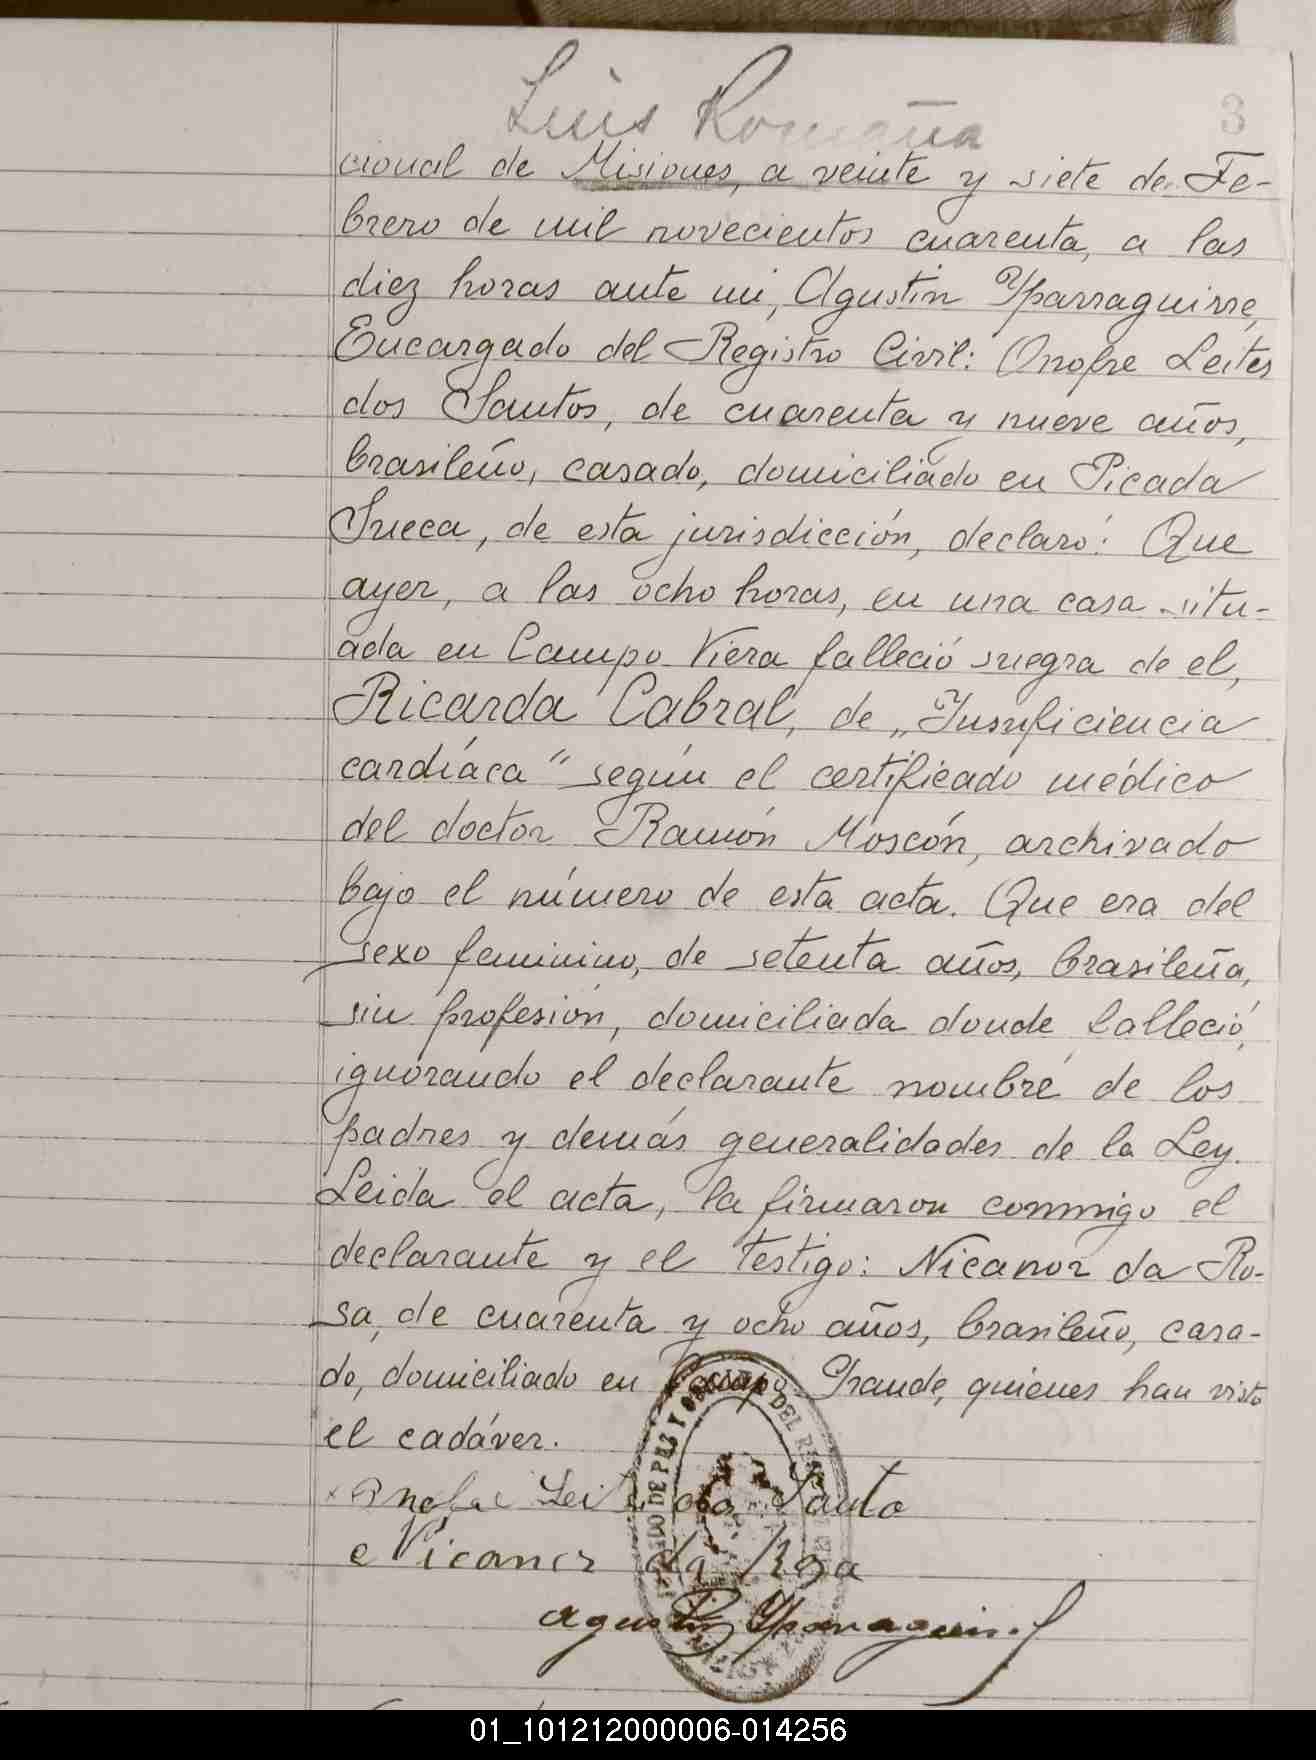 Luis Romaña
3
cional de Misiones, a veinte y siete de Fe-
brero de mil novecientos cuarenta, a las
diez horas ante mi, Agustin Yparraguirre,
Encargado del Registro Civil: Onofre Leites
dos Santos, de cuarenta y nueve años,
brasileño, casado, domiciliado en Picada
Sueca, de esta jurisdicción, declaró: Que
ayer, a las ocho horas, en una casa situ-
ada en Campo Viera falleció suegra de el,
Ricarda Cabral, de „Insuficiencia
cardíaca“ según el certificado médico
del doctor Ramón Moscón, archivado
bajo el número de esta acta. Que era del
sexo feminino, de setenta años, brasileña,
sin profesión, domiciliada donde falleció,
ignorando el declarante nombre de los
padres y demás generalidades de la Ley.
Leida el acta, la firmaron conmigo el
declarante y el testigo: Nicanor da Ro-
sa, de cuarenta y ocho años, brasileño, casa-
do, domiciliado en Campo Grande, quienes han visto
el cadáver.
x Onofre Leite dos Santo
e Nicanor da Rosa
Agustin Yparraguirre
DE PAZ Y DEL
01_101212000006-014256